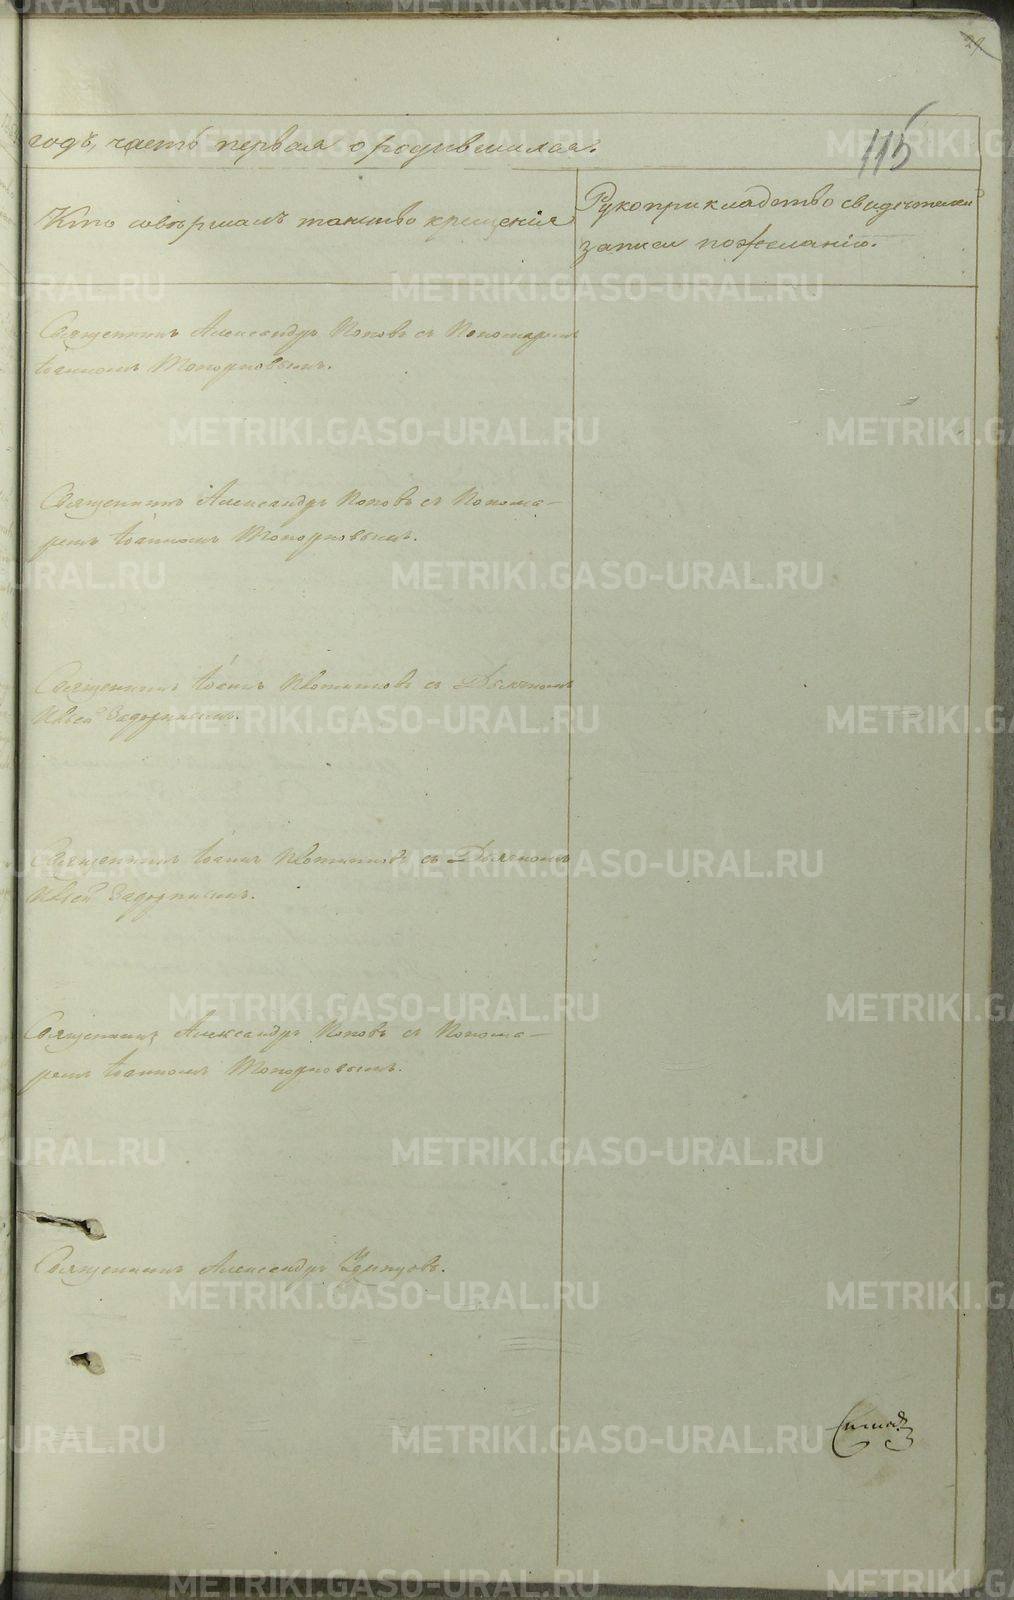 29
115
годъ, часть первая о родившихся.
Кто совершалъ таинство крещенія
Рукоприкладство свидетелей
записи по желанію.
Священникъ Александръ Поповъ съ Пономаремъ
Іоанномъ Топорковымъ.
Священникъ Александръ Поповъ съ Понома-
ремъ Іоанномъ Топорковымъ.
Священникъ Іоаннъ съ Діакономъ
Задоринымъ.
Священникъ Іоаннъ съ Діакономъ
Задоринымъ.
Священникъ Александръ Поповъ съ Понома-
ремъ Іоанномъ Топорковымъ.
Священникъ Александръ
METRIKI.GASO-URAL.RU